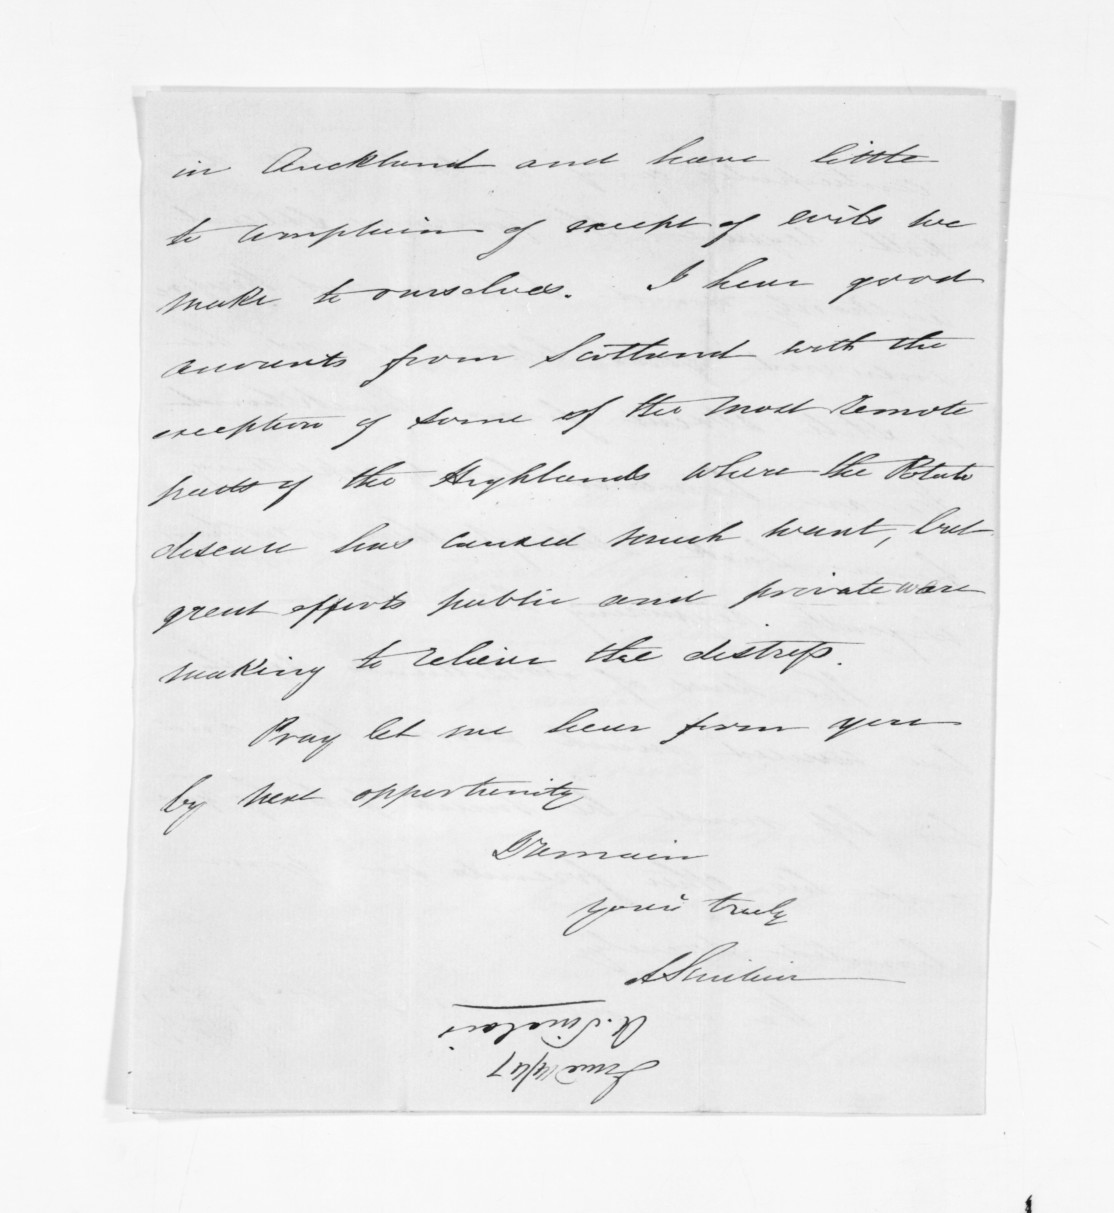 in Auckland and have little
to complain of except of evils we
make to ourselves. I hear good
accounts from Scotland with the
exception of some of the most remote
parts of the Highlands where the Potato
disease has caused much want, but
great efforts public and private were
making to relieve the distress.
Pray let me hear from you
by next opportunity
Remain
yours truly
A Sinclair
A. Sinclair
June 14/47